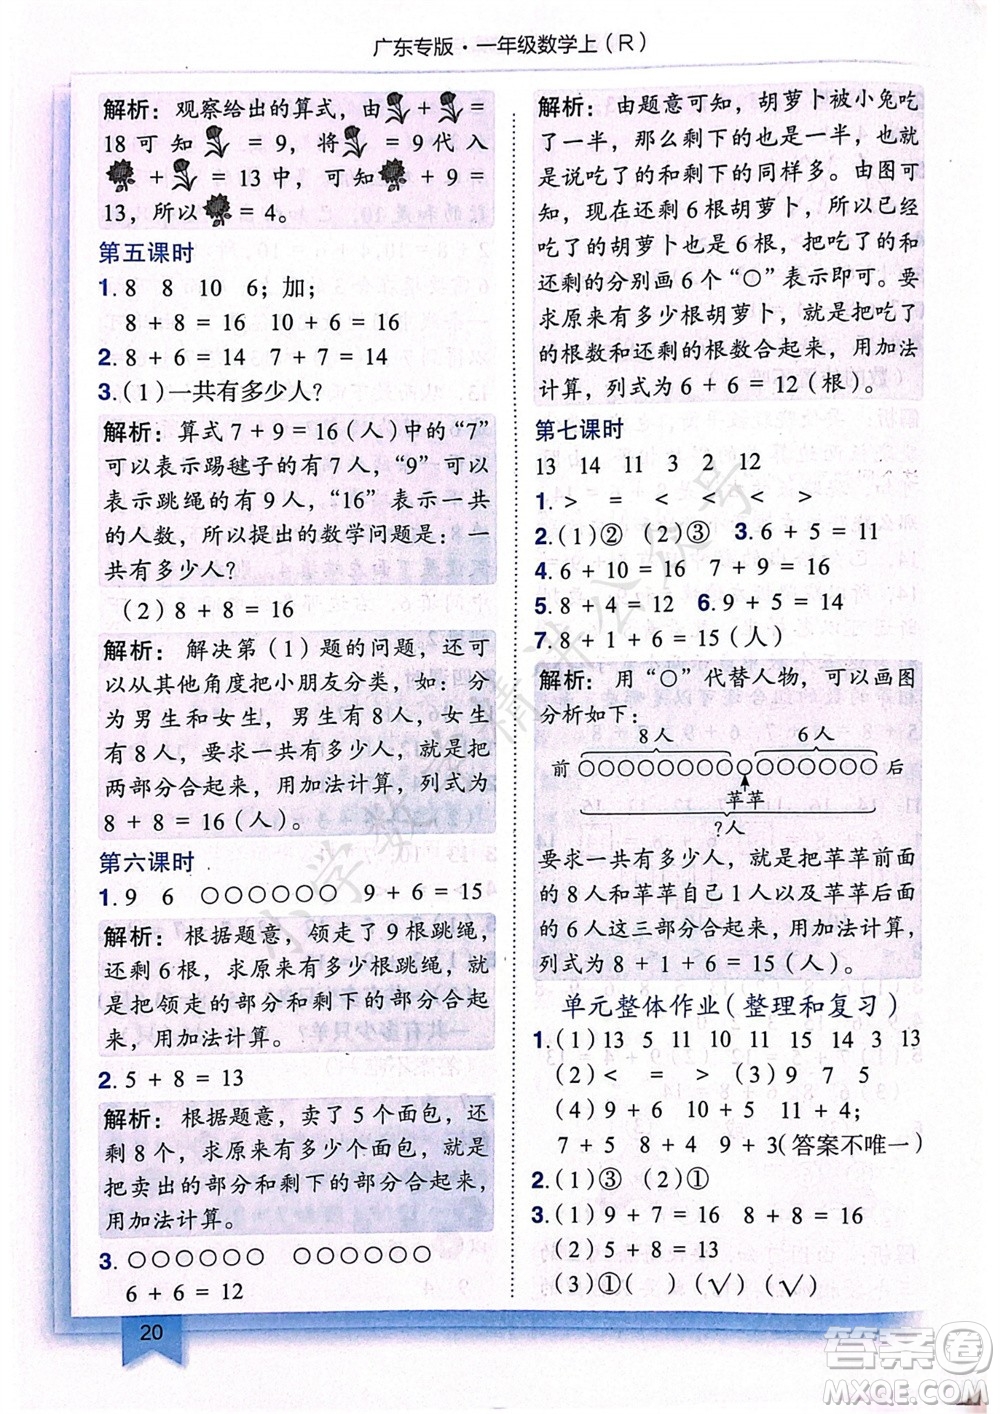 广东专版·一年级数学上(R)
解析：观察给出的算式，由 + =
18可知 = 9，将 = 9代入
 + = 13中，可知 + 9 =
13，所以 = 4。
第五课时
1. 8 8 10 6；加；
8 + 8 = 16 10 + 6 = 16
2. 8 + 6 = 14 7 + 7 = 14
3.(1)一共有多少人？
解析：算式7 + 9 = 16(人)中的“7”
可以表示踢毽子的有7人，“9”可
以表示跳绳的有9人，“16”表示一共
的人数，所以提出的数学问题是：一
共有多少人？
(2) 8 + 8 = 16
解析：解决第(1)题的问题，还可
以从其他角度把小朋友分类，如：分
为男生和女生，男生有8人，女生
有8人，要求一共有多少人，就是把
两部分合起来，用加法计算，列式为
8 + 8 = 16(人)。
第六课时
1. 9 6 ○○○○○○ 9 + 6 = 15
解析：根据题意，领走了9根跳绳，
还剩6根，求原来有多少根跳绳，就
是把领走的部分和剩下的部分合起
来，用加法计算。
2. 5 + 8 = 13
解析：根据题意，卖了5个面包，还
剩8个，求原来有多少个面包，就是
把卖掉的部分和剩下的部分合起来，
用加法计算。
3. ○○○○○○ ○○○○○○
6 + 6 = 12
解析：由题意可知，胡萝卜被小兔吃
了一半，那么剩下的也是一半，也就
是说吃了的和剩下的同样多。由图
可知，现在还剩6根胡萝卜，所以已经
吃了的胡萝卜也是6根，把吃了的和
还剩的分别画6个“○”表示即可。要
求原来有多少根胡萝卜，就是把吃了
的根数和还剩的根数合起来，用加法
计算，列式为6 + 6 = 12(根)。
第七课时
13 14 11 3 2 12
1. > = < < > <
2.(1)② (2)③ 3. 6 + 5 = 11
4. 6 + 10 = 16 7 + 9 = 16
5. 8 + 4 = 12 6. 9 + 6 = 15
7. 8 + 1 + 6 = 15(人)
解析：用“○”代替人物，可以画图
分析如下：
8人 6人
前 ○○○○○○○○○○○○○○○ 后
苹苹
?人
要求一共有多少人，就是把苹苹前面的
8人和苹苹自己1人以及苹苹后面
的6人这三部分合起来，用加法计算，
列式为8 + 1 + 6 = 15(人)。
单元整体作业(整理和复习)
1.(1)13 15 11 10 15 14 3 13
(2)< = > (3)9 7 5
(4)6 + 6 8 + 4 11 + 4；
7 + 5 8 + 4 9 + 3(答案不唯一)
2.(1)③ (2)①
3.(1)9 + 7 = 16 8 + 8 = 16
(2)5 + 8 = 13
(3)①( ) (√) (√)
20
小学数学精讲公众号
答案圈
MXQE.COM